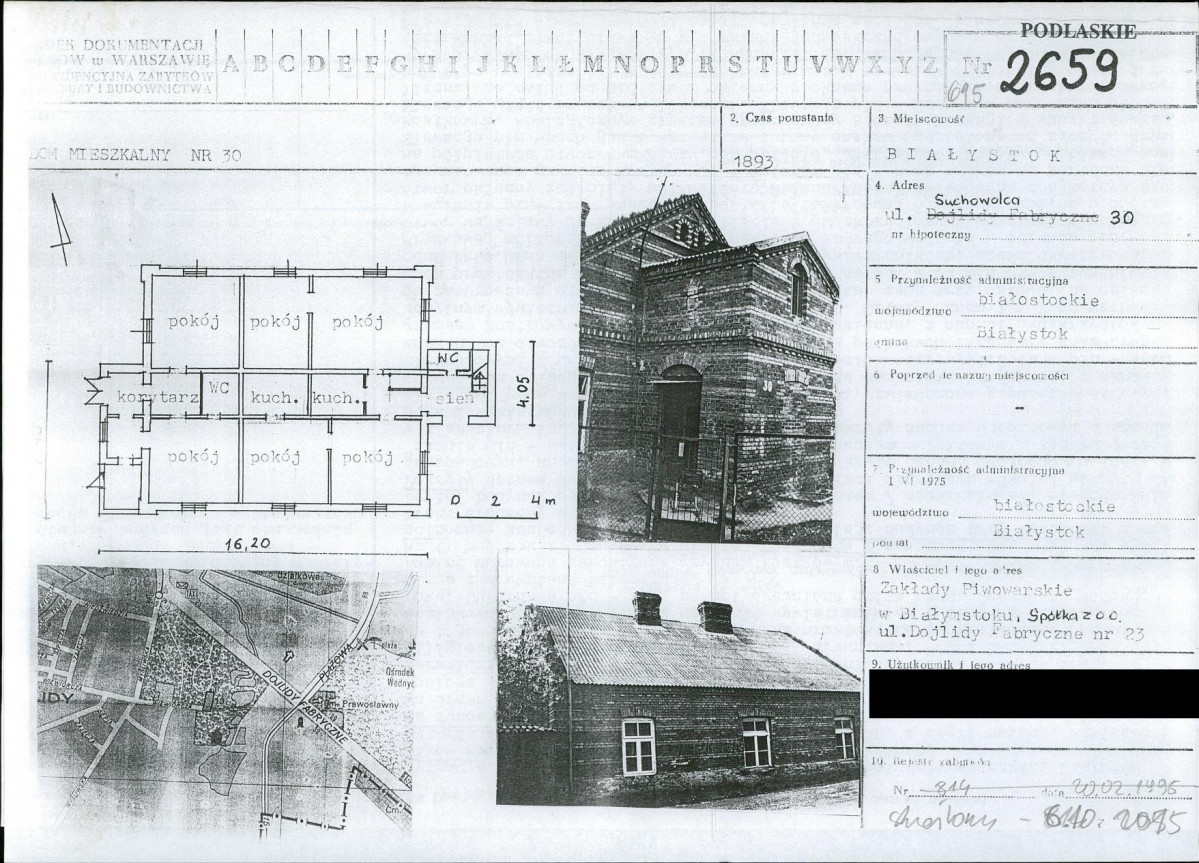 PODLASKIE
DEK DOKUMENTACJI
W WARSZAWIE
IDENCYJNA ZABYTKÓW
I BUDOWNICTWA
A B C D E F G H I J K L Ł M N O P R S T U V W X Y Z
Nr 2659
695
DOM MIESZKALNY NR 30
2. Czas powstania
1893
3. Miejscowość
BIAŁYSTOK
4. Adres
Suchowolca
ul. Dojlidy Fabryczne 30
nr hipoteczny
5 Przynależność administracyjna
białostockie
województwo
Białystok
gmina
6 Poprzednie nazwy miejscowości
-
7. Przynależność administracyjna
1 VI 1975
województwo białostockie
Białystok
powiat
8 Właściciel i jego adres
Zakłady Piwowarskie
w Białymstoku, Spółka z o.o.
ul.Dojlidy Fabryczne nr 23
9. Użytkownik i jego adres
10. Rejestr zabytków
Nr 814 data 20.02.1996
skreślony -
pokój pokój pokój
WC
korytarz WC kuch. kuch. sień
4.05
pokój pokój pokój
0 2 4m
16,20
działkowe
PLAŻOWA
plaża
Ośrodek
Wodnyc
DOJLIDY FABRYCZNE
Prawosławny
IDY
Cm.
30